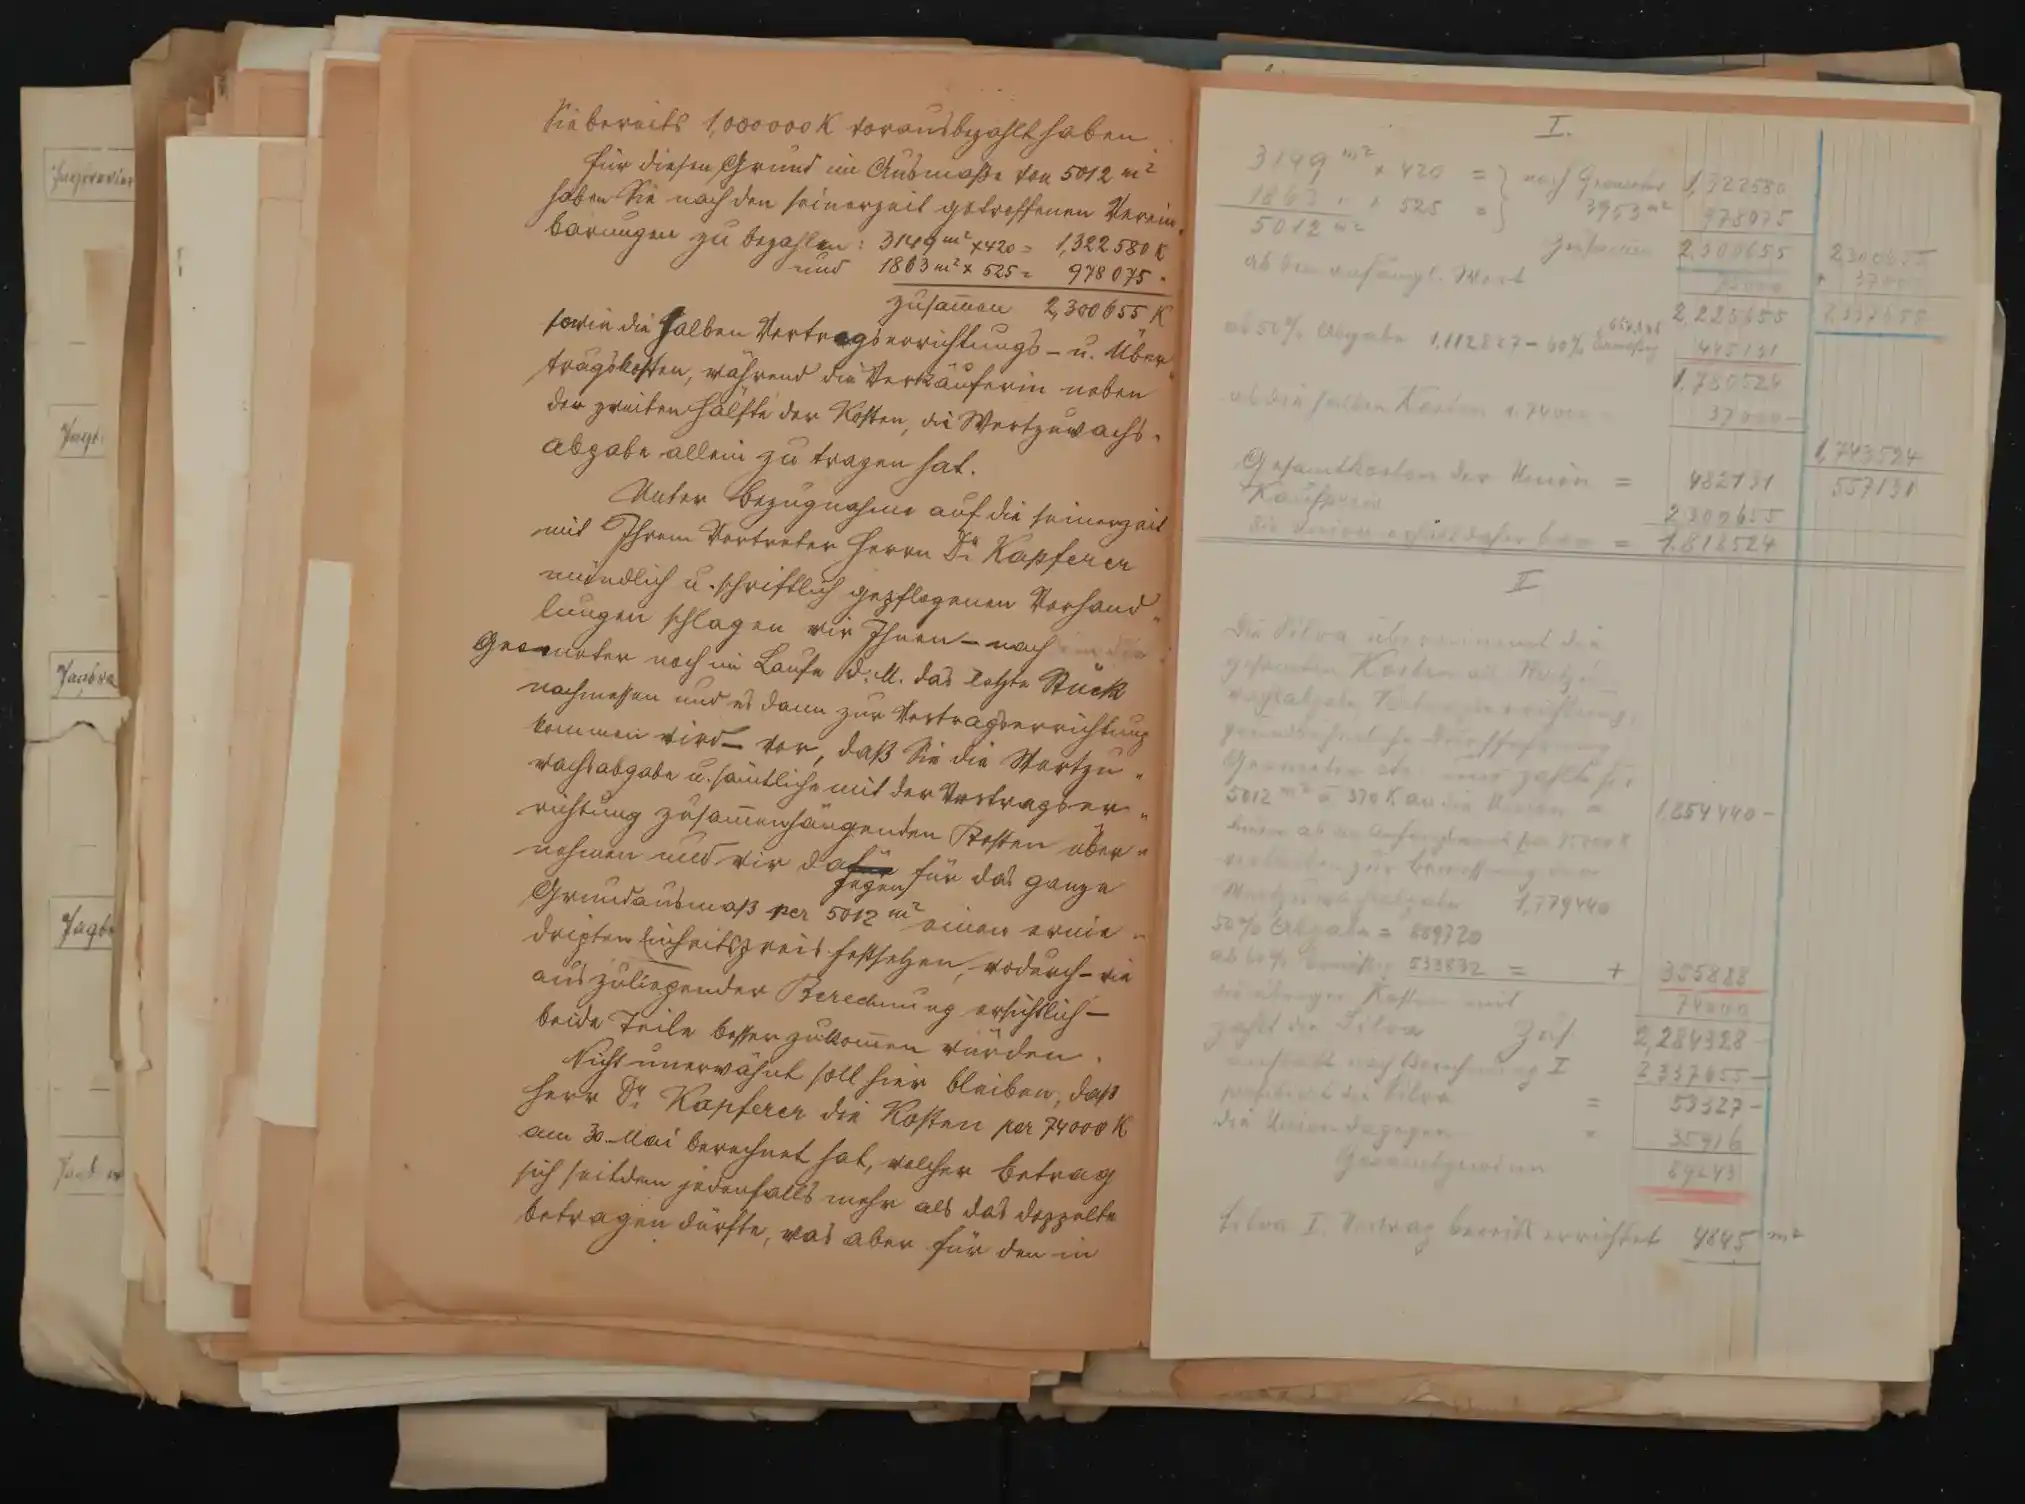 Jagdrevier
Jagd
Sie bereits 1,000000 K vorausbezahlt haben
für diesen Grund im Ausmaße von 5012 m²
haben Sie nach den seinerzeit getroffenen Verein-
barungen zu bezahlen: 3149 m² x 420 = 1,322580 K
und 1863 m² x 525 = 978075 "
zusammen 2,300655 K
sowie die halben Vertragserrichtungs- u. Über-
tragskosten, während die Verkäuferin neben
der zweiten Hälfte der Kosten, die Wertzuwachs-
abgabe allein zu tragen hat.
Unter Bezugnahme auf die seinerzeit
mit Ihrem Vertreter Herrn Dr. Kapferer
mündlich u. schriftlich gepflogenen Verhand-
lungen schlagen wir Ihnen – nach
Geometer noch im Laufe d. M. das letzte Stück
nachmessen und es dann zur Vertragserrichtung
kommen wird – vor, daß Sie die Wertzu-
wachsabgabe u. sämtliche mit der Vertragser-
richtung zusammenhängenden Kosten über-
nehmen und wir dafür für das ganze
gegen
Grundausmaß per 5012 m² einen ernie-
drigten Einheitspreis festsetzen, wodurch – wie
aus zuliegender Berechnung ersichtlich –
beide Teile besser zukommen würden.
Nicht unerwähnt soll hier bleiben, daß
Herr Dr. Kapferer die Kosten per 74000 K
am 30. Mai berechnet hat, welcher Betrag
sich seitdem jedenfalls mehr als das doppelte
betragen dürfte, was aber für den in
I.
3149 m² x 420 = } nach Geometer 1,322580
1863 " x 525 = } 3953 m² 978075
5012 m² zusammen 2,300655 2300655
ab den anfängl. Wert + 37000
2,225655 2,337655
ab 50% Abgabe 1,112827 – 60% 445131
1,780524
ab die halben Kosten 37000 –
1,743524
Gesamtkosten der Union = 482131 557131
Kaufpreis 2300655
die Union erhält daher = 1.818524
II
Die Silva übernimmt die
gesamten Kosten als Wertzu-
wachsabgabe,
grundbücherliche Durchführung
Geometer etc. und zahlt für
5012 m² a 370 K an die Union = 1,854440 –
hievon ab den Anfangswert per 75000 K
verbleiben zur Bemessung der
Wertzuwachsabgabe 1,779440
50% Abgabe = 889720
ab 60% 533832 = + 355888
die übrigen Kosten mit 74000
zahlt die Silva zus. 2,284328 –
anstatt nach Berechnung I 2337655 –
profitiert die Silva = 53327 –
die Union dagegen = 35916
Gesamtgewinn 89243
Silva I. Vertrag bereits errichtet 4845 m²